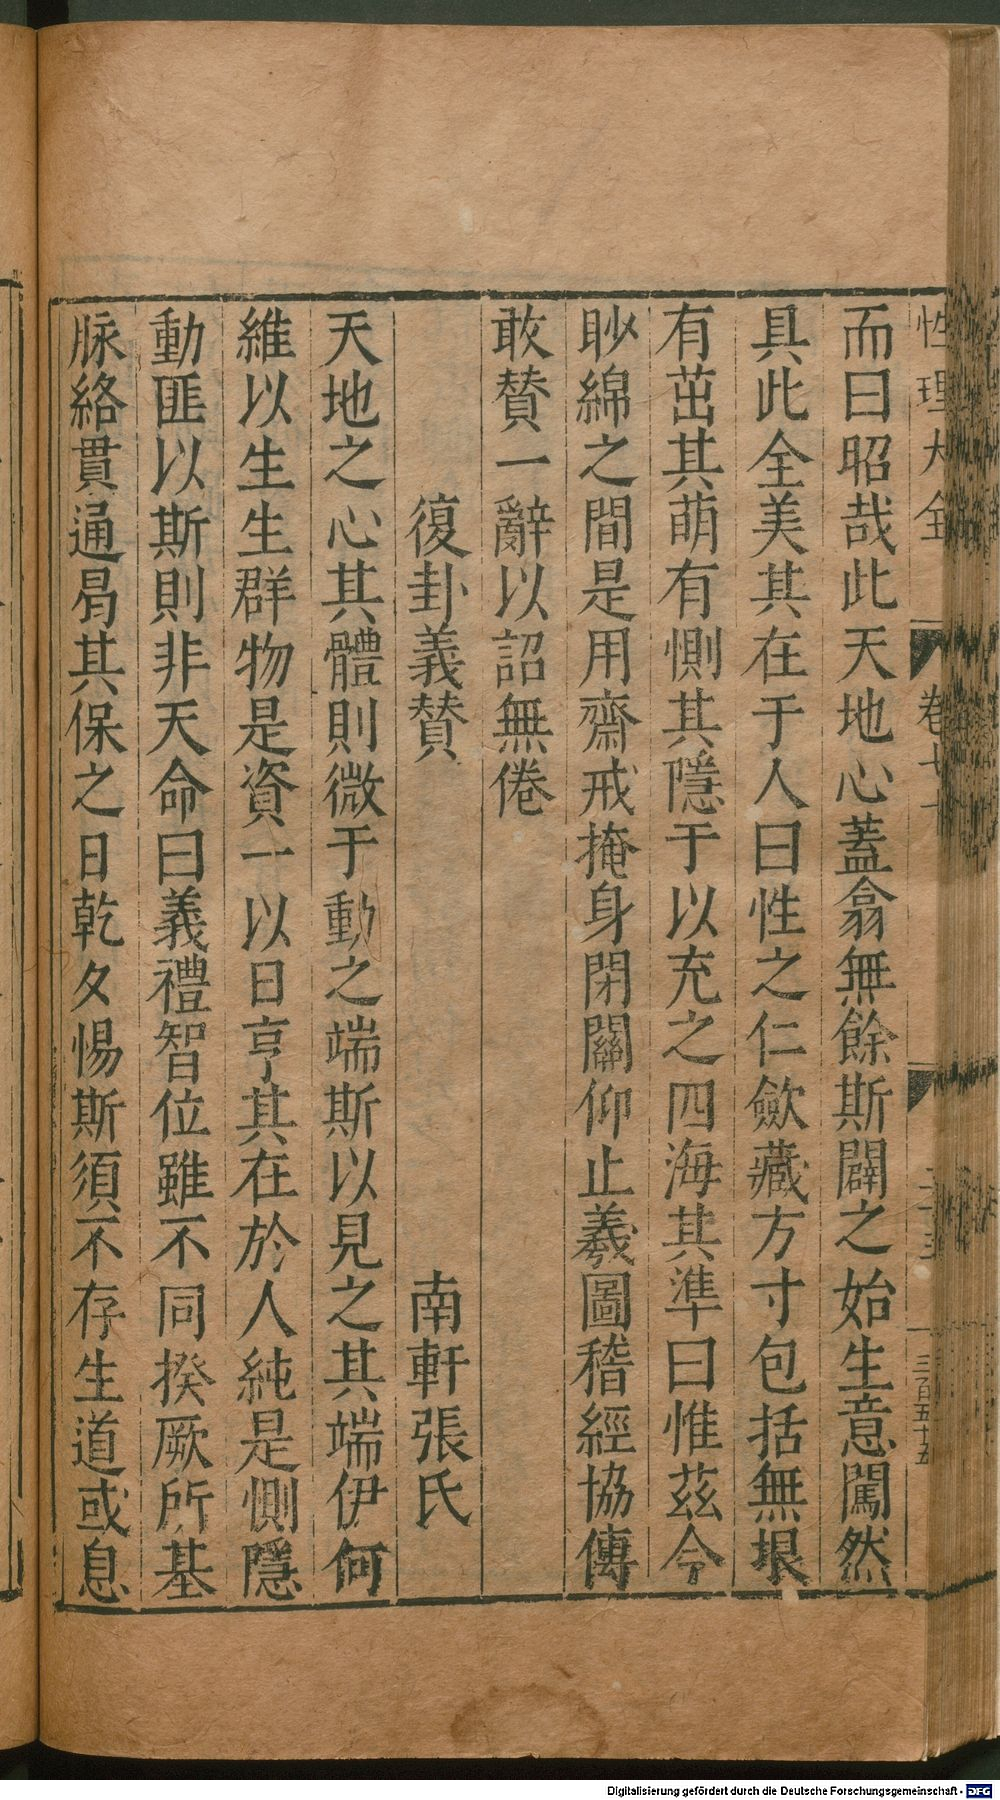 性理大全 卷七十
三百五十五
而曰昭哉此天地心蓋翕無餘斯闢之始生意闖然
具此全美其在于人曰性之仁歛藏方寸包括無垠
有茁其萌有惻其隱于以充之四海其準曰惟茲今
眇綿之間是用齋戒掩身閉關仰止羲圖稽經協傳
敢贊一辭以詔無倦
復卦義贊 南軒張氏
天地之心其體則微于動之端斯以見之其端伊何
維以生生群物是資一以日亨其在於人純是惻隱
動匪以斯則非天命曰義禮智位雖不同揆厥所基
脉絡貫通曷其保之日乾夕惕斯須不存生道或息
Digitalisierung gefördert durch die Deutsche Forschungsgemeinschaft - DFG